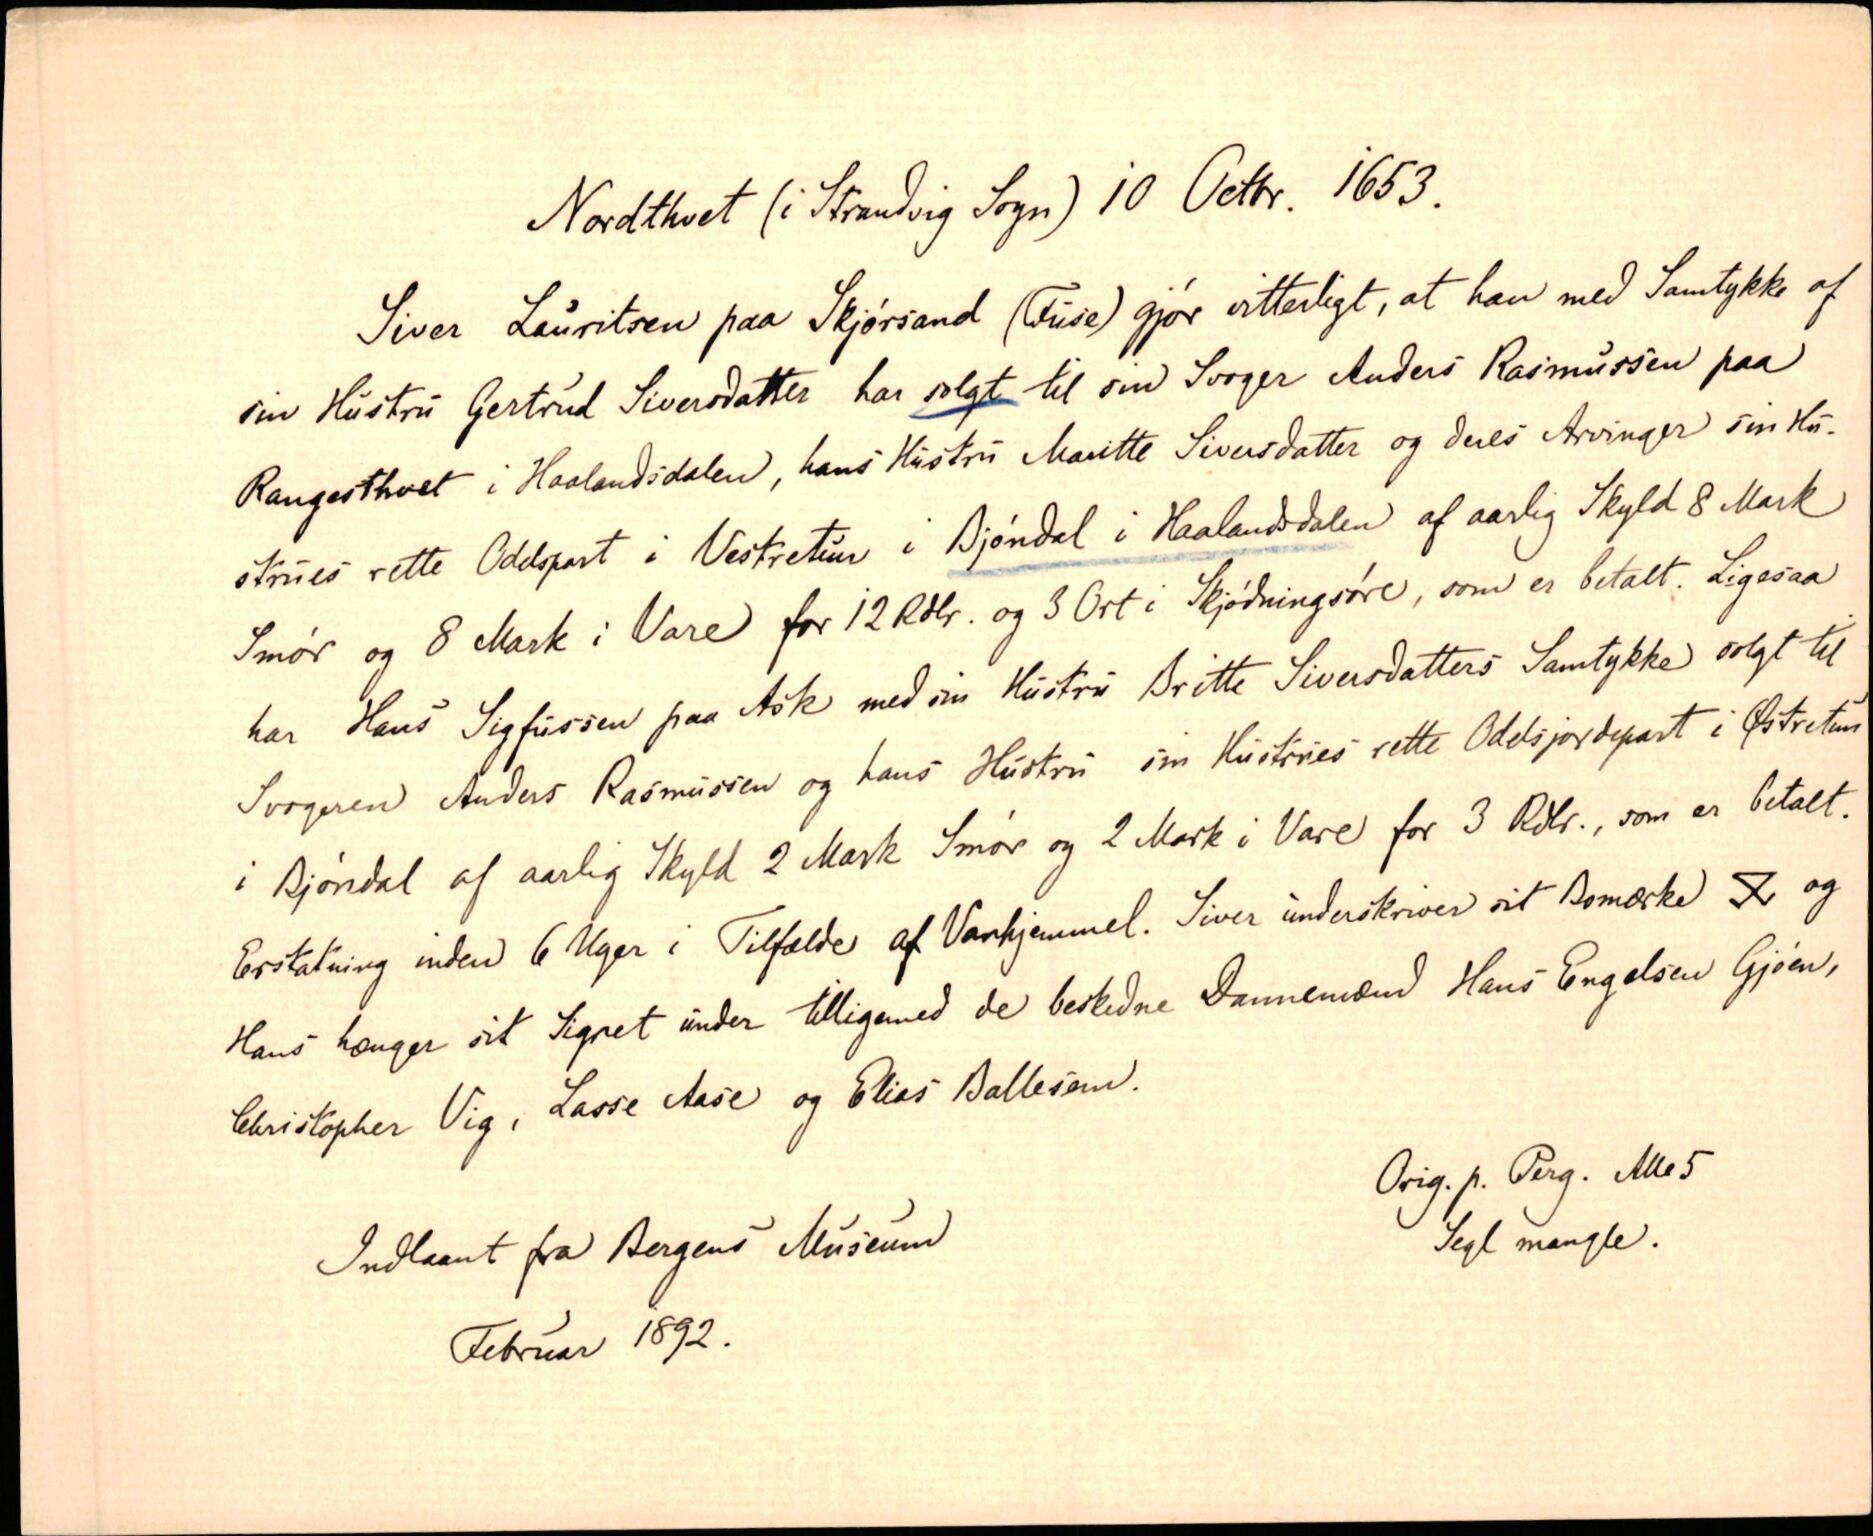 Nordthvet (i Strandvig Sogn) 10 Octbr. 1653.
Siver Lauritsen paa Skjórsand (Fuse) gjór vitterligt, at han med Samtykke af
sin Hustru Gertrud Siversdatter har solgt til sin Svoger Anders Rasmussen paa
Rangesthvet i Haalandsdalen, hans Hustru Maritte Siversdatter og deres Arvinger sin Hu-
strues rette Odelspart i Vestretun i Bjóndal i Haalandsdalen af aarlig Skyld 8 Mark
Smór og 8 Mark i Vare for 12 Rdlr. og 3 Ort i Skjódningsóre, som er betalt. Ligesaa
har Hans Sigfussen paa Ask med sin Hustru Britte Siversdatters Samtykke solgt til
Svogeren Anders Rasmussen og hans Hustru sin Hustrues rette Odelsjordepart i Østretun
i Bjóndal af aarlig Skyld 2 Mark Smór og 2 Mark i Vare for 3 Rdlr., som er betalt.
Erstatning inden 6 Uger i Tilfælde af Vanhjemmel. Siver underskriver sit Bomærke og
Hans hænger sit Signet under tilligemed de beskedne Dannemænd Hans Engelsen Gjóen,
Christopher Vig, Lasse Aase og Elias Ballesem.
Orig. p. Perg. Alle 5
Segl mangle.
Indlaant fra Bergens Museum
Februar 1892.